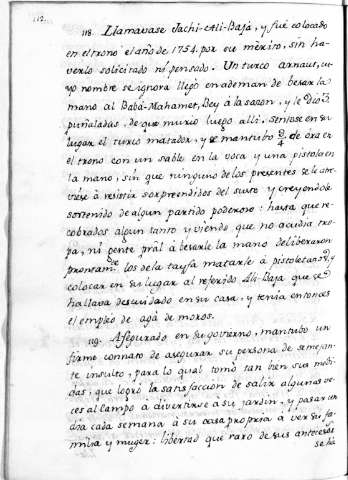 112.
118. Llamavase Jachi-Ali-Bajá, y fué colocado
en el trono el año de 1754. por su mérito, sin ha-
verlo solicitado ni pensado. Un turco arnaut, cu-
yo nombre se ignora llegó en ademan de besar la
mano al Babá-Mahamet, Bey á la sazon, y le dio 3.
puñaladas, de que murió luego alli. Sentose en su
lugar el turco matador, y se mantubo 3/4 de ora en
el trono con un sable en la voca y una pistola en
la mano, sin que ninguno de los presentes se atre-
viese à resistir sorprendidos del susto y creyendole
sostenido de algun partido poderoso: hasta que re-
cobrados algun tanto y viendo que no acudia tro-
pa, ni gente pral à besarle la mano deliberaron
prontamte. los de la tayfa matarle á pistoletazos, y
colocar en su lugar al referido Ali-Bajá que se
hallava descuidado en su casa, y tenia entonces
el empleo de agà de moros.
119. Asegurado en su govierno, mantubo un
firme connato de asegurar su persona de semejan-
te insulto, para lo qual tomó tan bien sus medi-
das, que logró la satisfaccion de salir algunas ve-
ces al campo à divertirse à su jardin, y pasar un
dia cada semana à su casa propria à ver su fa-
milia y muger: libertad que raro de sus antecesores
se ha